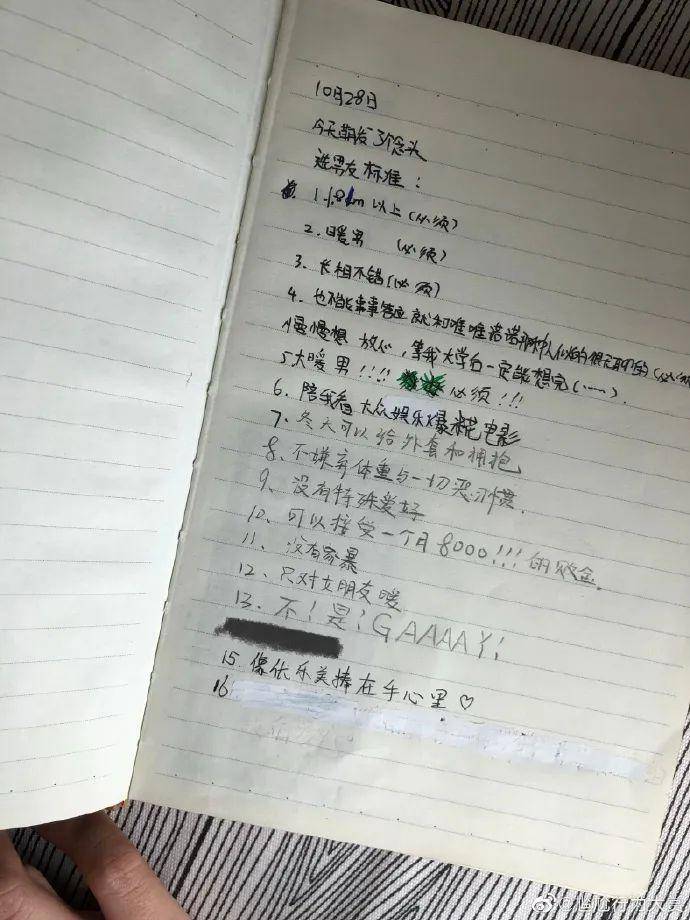 10月28日
今天萌发了个念头
选男友标准:
1. 1.8m 以上(必须)
2. 暖男 (必须)
3. 长相不错(必须)
4. 也不能事事答应 就和唯唯诺诺
慢慢想 放心,等我大学后一定能想完(……)
5大暖男!!!! 必须!!!
6. 陪我看 大众娱乐爆米花电影
7. 冬天可以给外套和拥抱
8. 不嫌弃体重与一切恶习惯.
9. 没有特殊爱好
10. 可以接受一个月8000!!!的败金.
11. 没有家暴
12、只对女朋友暖
13、不!是!GAAAAY!
15. 像优乐美捧在手心里♡
16